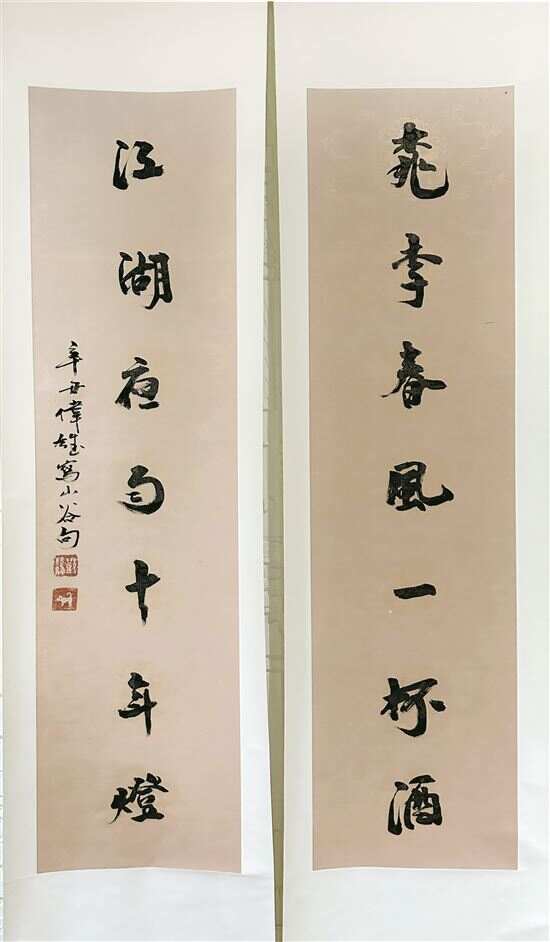 桃李春風一杯酒
江湖夜雨十年燈
辛丑偉雄寫山谷句